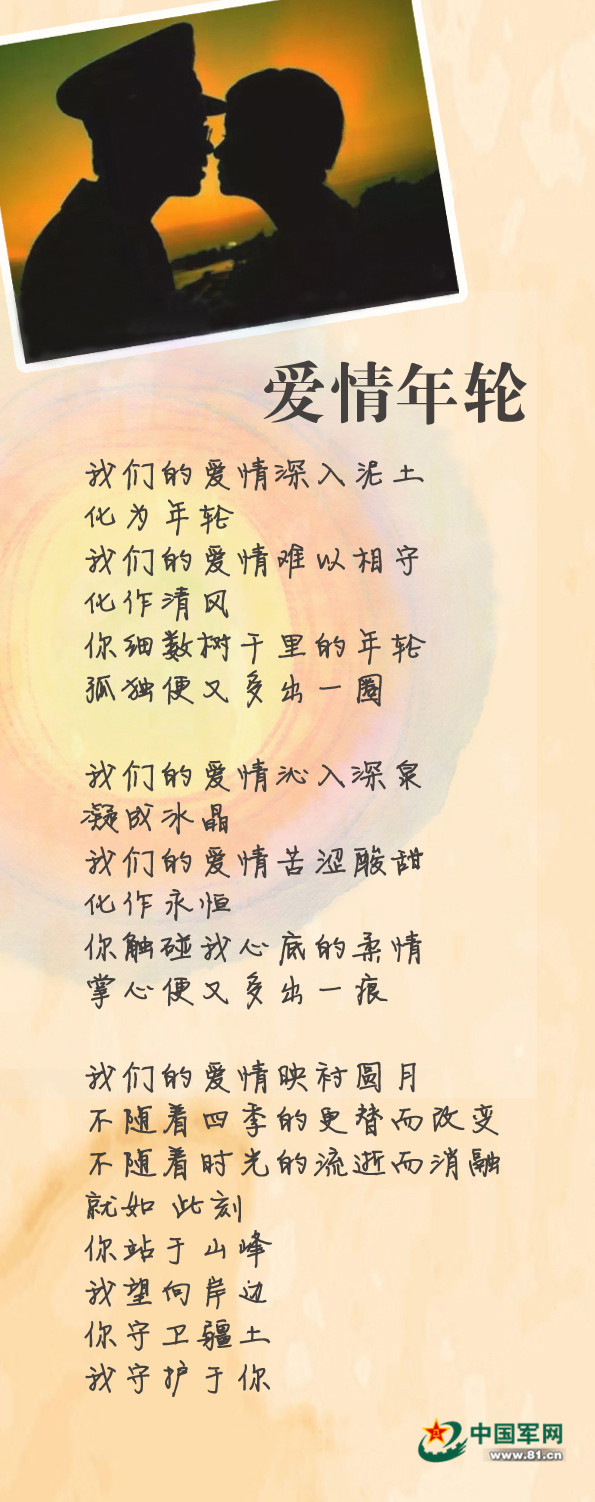 爱情年轮
我们的爱情深入泥土
化为年轮
我们的爱情难以相守
化作清风
你细数树干里的年轮
孤独便又多出一圈
我们的爱情沁入深泉
凝成冰晶
我们的爱情苦涩酸甜
化作永恒
你触碰我心底的柔情
掌心便又多出一痕
我们的爱情映衬圆月
不随着四季的更替而改变
不随着时光的流逝而消融
就如此刻
你站于山峰
我望向岸边
你守卫疆土
我守护于你
中国军网
www.81.cn